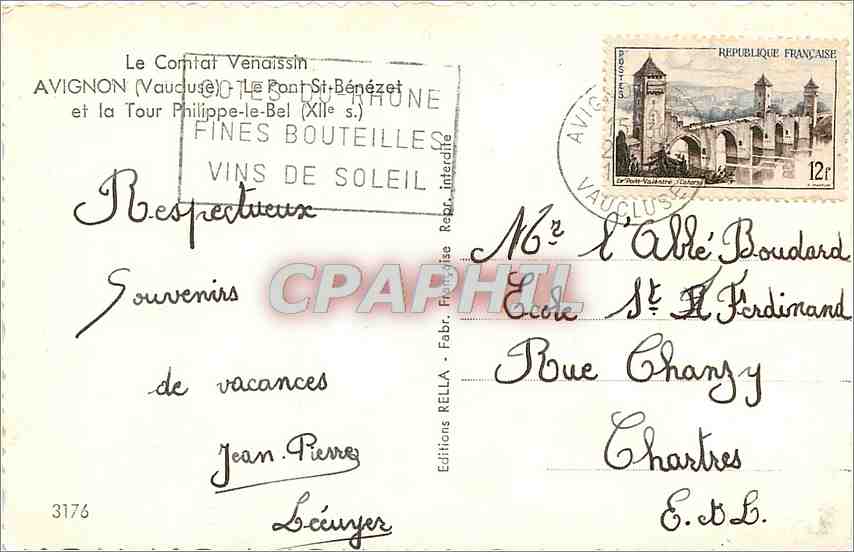 Le Comtat Venaissin
AVIGNON (Vaucluse) - Le Pont St-Bénézet
et la Tour Philippe-le-Bel (XIIe s.)
COTES DU RHONE
FINES BOUTEILLES
VINS DE SOLEIL
Respectueux
Souvenirs
de vacances
Jean-Pierre
Lécuyer
3176
Editions RELLA - Fabr. Française Repr. interdite
CPAPHIL
POSTES
REPUBLIQUE FRANÇAISE
12f
Le Pont Valentré - Cahors
AVIGNON
VAUCLUSE
Mr. l'Abbé Boudard
Ecole St. Ferdinand
Rue Chanzy
Chartres
E. & L.